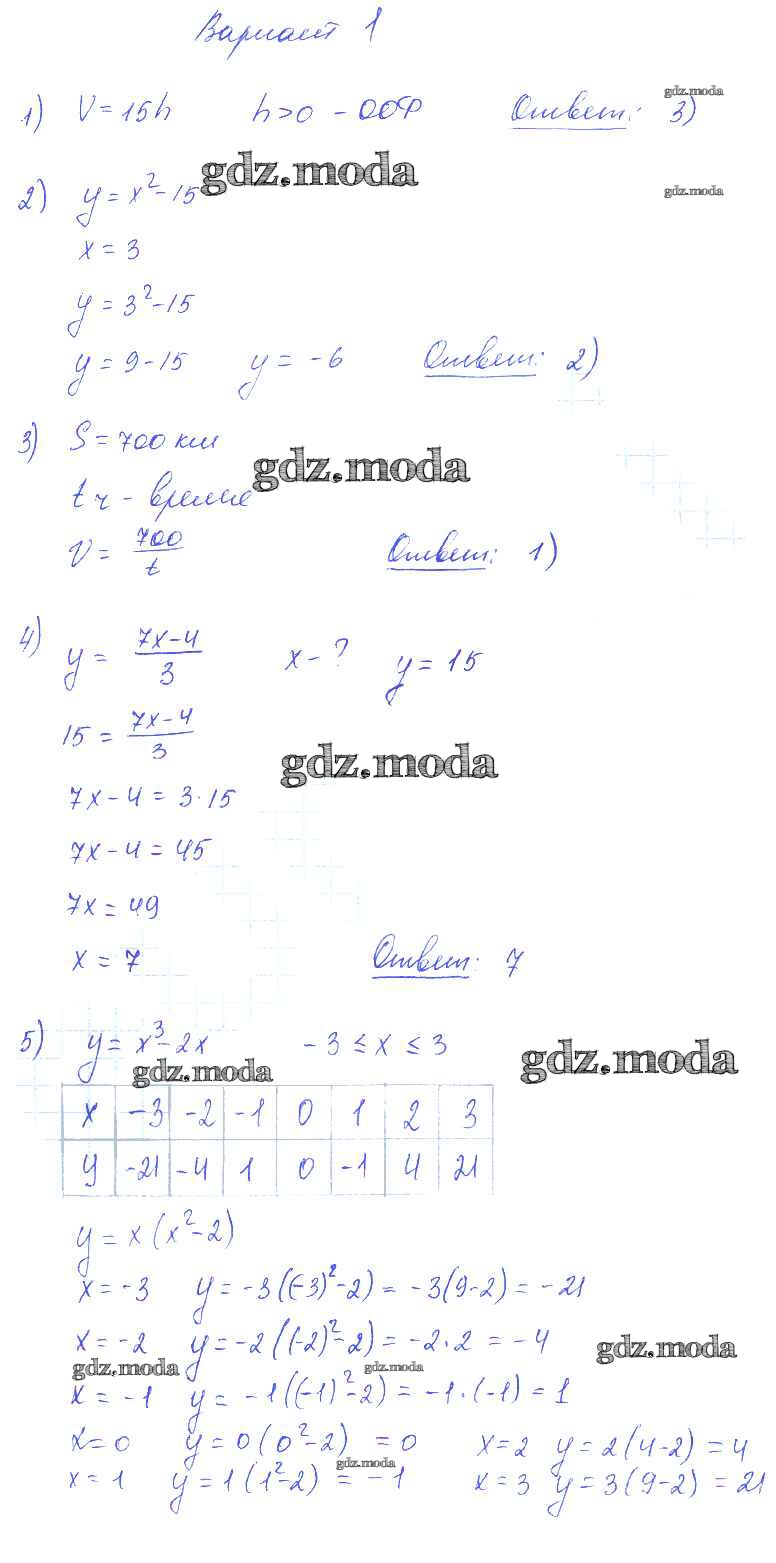 Вариант 1
1) V = 15h h>0 – ООФ Ответ: 3)
gdz.moda
gdz.moda
2) y = x² – 15
gdz.moda
x = 3
y = 3² – 15
y = 9 – 15 y = –6 Ответ: 2)
3) S = 700 км
gdz.moda
t ч – время
V = 700/t Ответ: 1)
4) y = (7x – 4)/3 x – ? y = 15
15 = (7x – 4)/3
gdz.moda
7x – 4 = 3·15
7x – 4 = 45
7x = 49
x = 7 Ответ: 7
5) y = x³ – 2x –3 ≤ x ≤ 3
gdz.moda
gdz.moda
x –3 –2 –1 0 1 2 3
y –21 –4 1 0 –1 4 21
y = x(x² – 2)
x = –3 y = –3((–3)² – 2) = –3(9–2) = –21
x = –2 y = –2((–2)² – 2) = –2·2 = –4
gdz.moda
gdz.moda
gdz.moda
x = –1 y = –1((–1)² – 2) = –1·(–1) = 1
x = 0 y = 0(0² – 2) = 0 x = 2 y = 2(4–2) = 4
gdz.moda
x = 1 y = 1(1² – 2) = –1 x = 3 y = 3(9–2) = 21